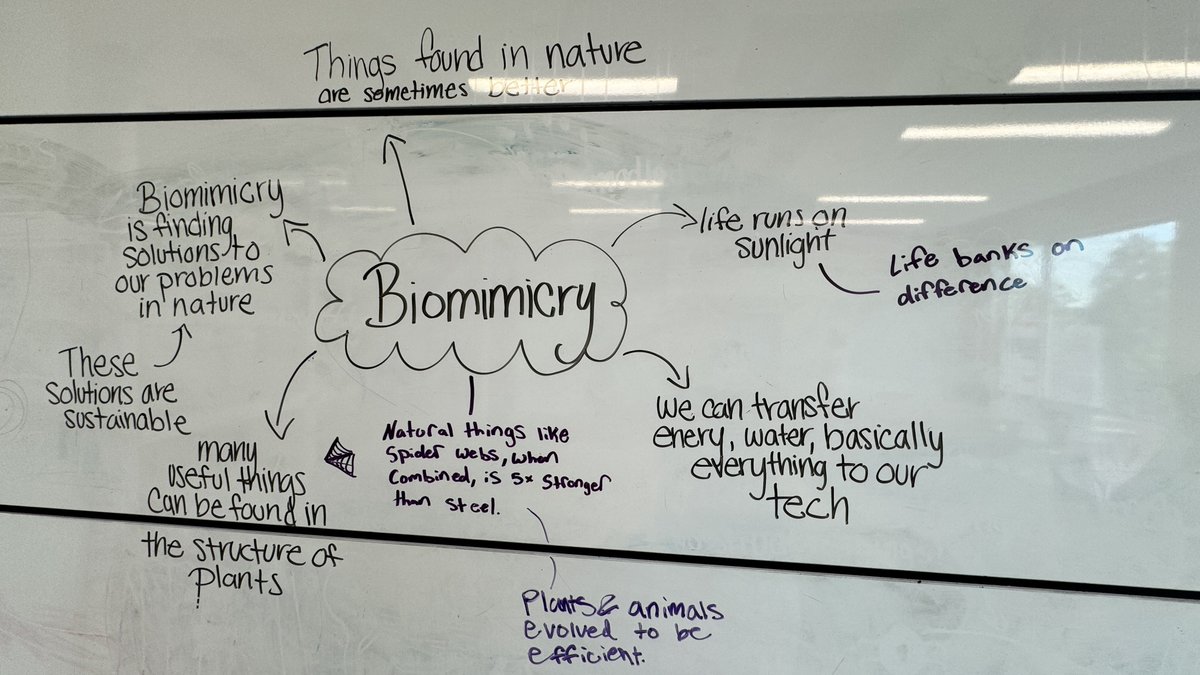 Things found in nature
are sometimes better
Biomimicry
is finding
solutions to
our problems
in nature
These
solutions are
sustainable
Biomimicry
life runs on
sunlight
Life banks on
difference
many
useful things
can be found in
the structure of
plants
Natural things like
spider webs, when
combined, is 5x stronger
than steel.
we can transfer
enery, water, basically
everything to our
tech
Plants & animals
evolved to be
efficient.